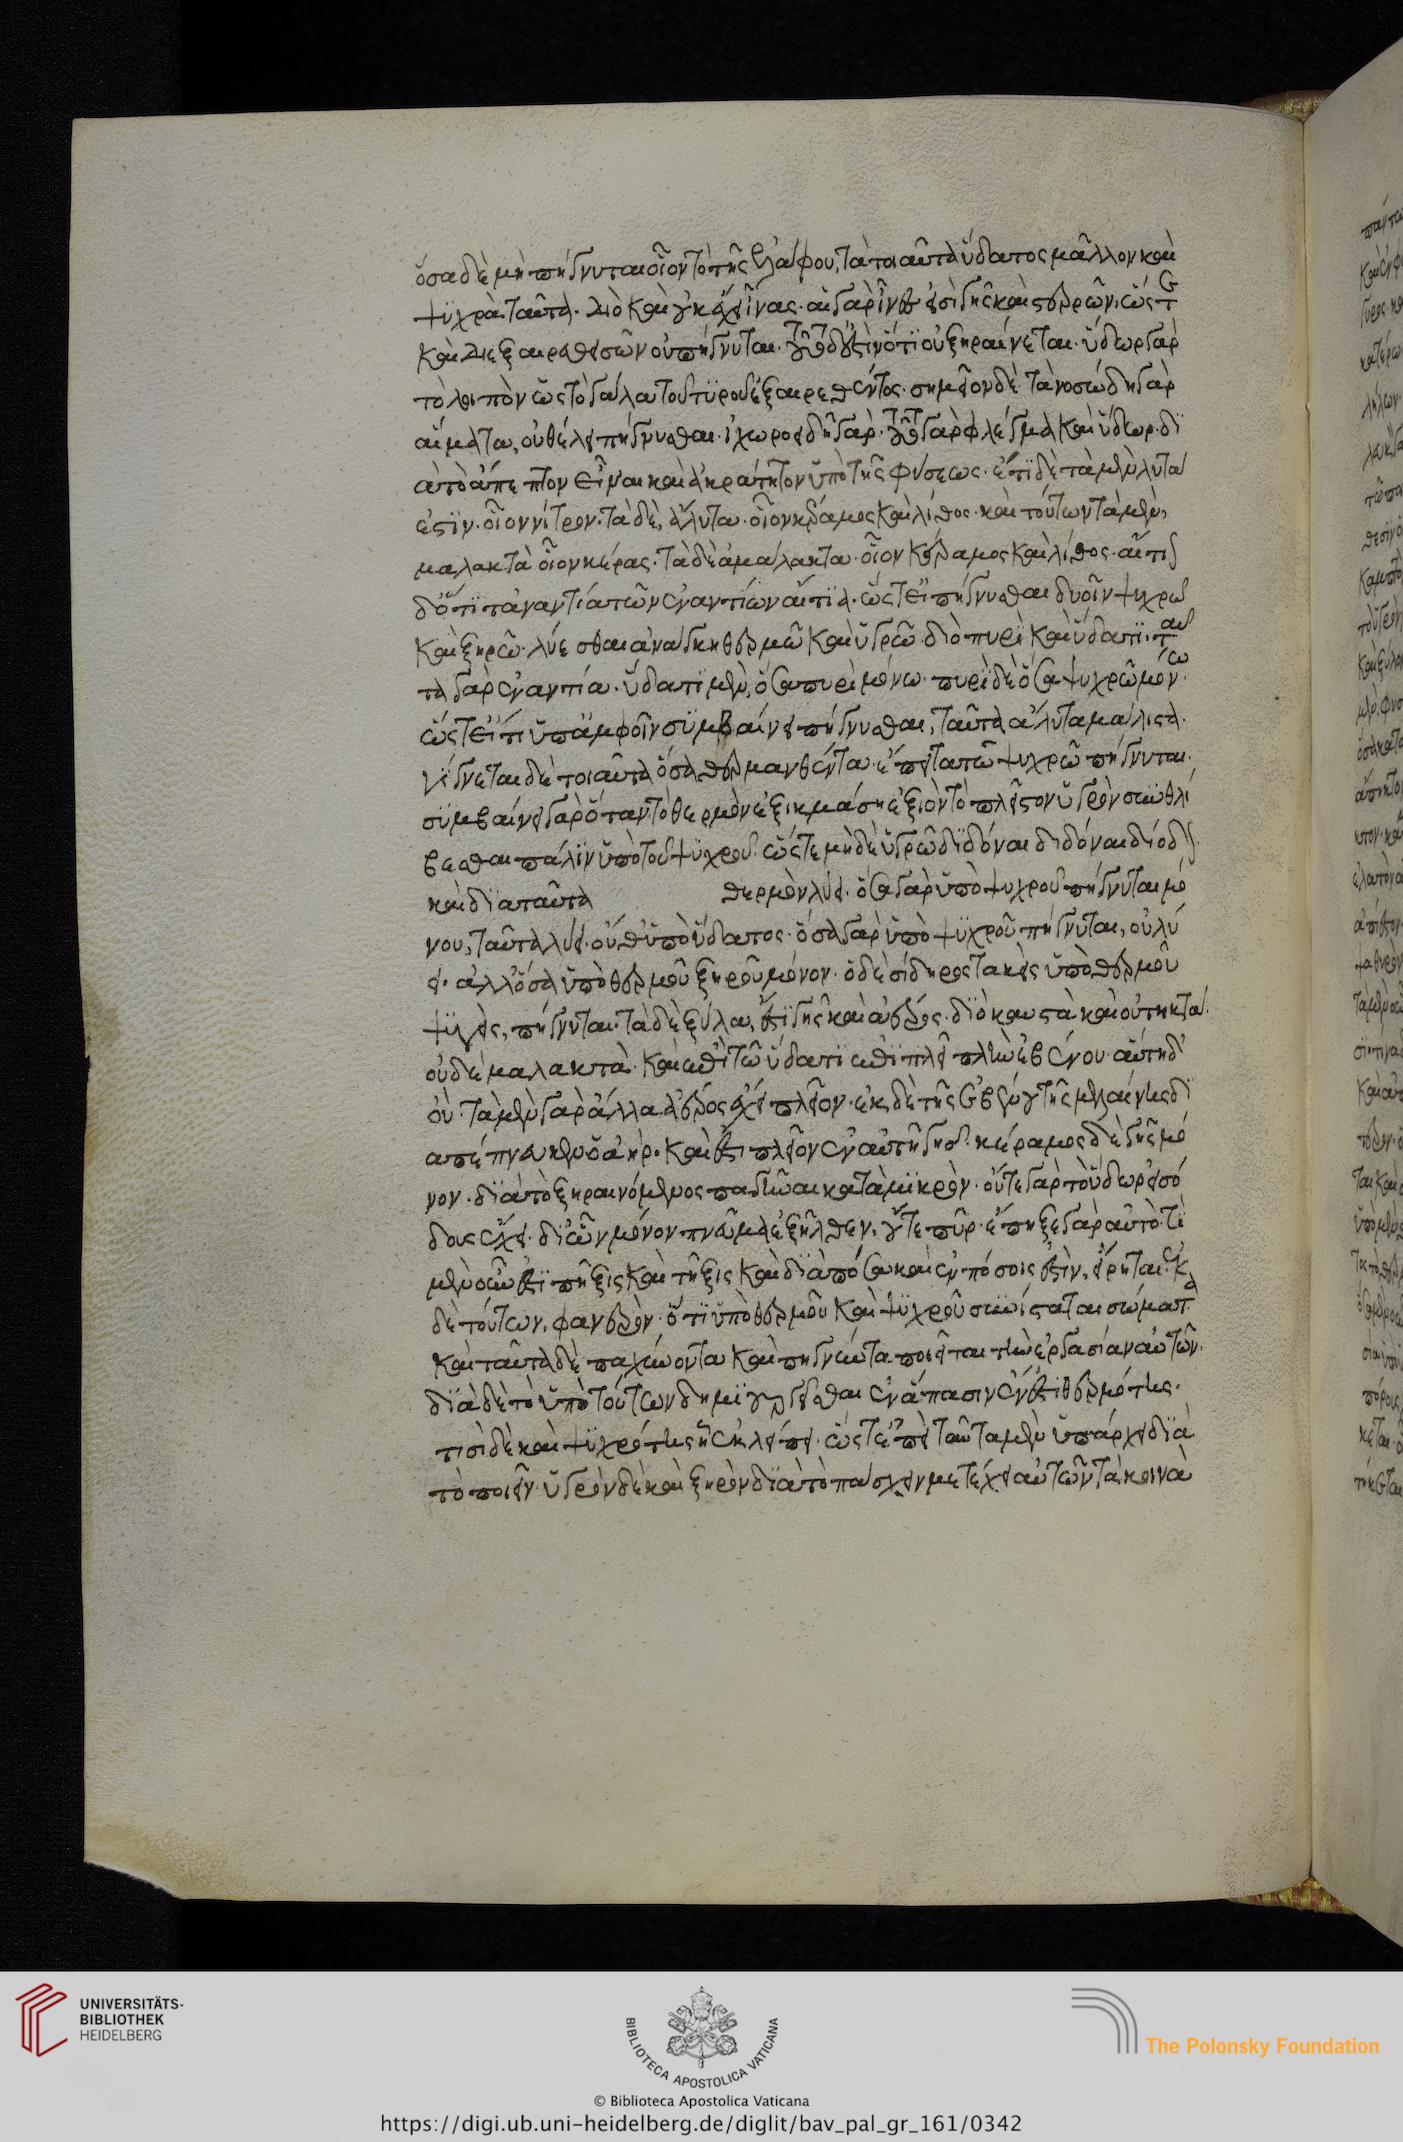 ὅσα δὲ μὴ πήγνυται οἷον τὸ τῆς ἐλάφου, τὰ τοιαῦτα ὕδατος μᾶλλον καὶ
ψυχρὰ ταῦτα. διὸ καὶ οὐκ ἔχει ἶνας. αἱ γὰρ ἶνές εἰσι γῆς καὶ στερεόν. ὥστε
καὶ ἐξαιρεθεισῶν οὐ πήγνυται. τοῦτο δ' ἐστὶν ὅτι οὐ ξηραίνεται. ὕδωρ γὰρ
τὸ λοιπὸν ὥς τὸ γάλα τοῦ τυροῦ ἐξαιρεθέντος. σημεῖον δὲ τὰ νοσώδη γὰρ
αἵματα, οὐ θέλει πήγνυσθαι. ἰχωροειδῆ γάρ. τοῦτο γὰρ φλέγμα καὶ ὕδωρ. δι
ὰ τὸ ἄπεπτον εἶναι καὶ ἀκράτητον ὑπὸ τῆς φύσεως. ἔτι δὲ τὰ μὲν λυτά
ἐστιν. οἷον νίτρον. τὰ δὲ, ἄλυτα. οἷον κέραμος καὶ λίθος. καὶ τούτων τὰ μὲν,
μαλακτὰ οἷον κέρας. τὰ δὲ ἀμάλακτα. οἷον κέραμος καὶ λίθος. αἴτιον
δ' ὅτι τἀναντία τῶν ἐναντίων αἴτια. ὥστ' εἰ πήγνυσθαι δυοῖν ψυχρῷ
καὶ ξηρῷ. λύεσθαι ἀνάγκη θερμῷ καὶ ὑγρῷ. διὸ πυρὶ καὶ ὕδατι. ταῦ
τα γὰρ ἐναντία. ὕδατι μὲν, ὅσα πυρὶ μόνω. πυρὶ δὲ ὅσα ψυχρῶ μόνω.
ὥστ' εἴ τι ὑπ' ἀμφοῖν συμβαίνει πήγνυσθαι, ταῦτα ἄλυτα μάλιστα.
γίγνεται δὲ τοιαῦτα ὅσα θερμανθέντα. ἔπειτα τῶ ψυχρῶ πήγνυται.
συμβαίνει γὰρ ὅταν τὸ θερμὸν ἐξικμάση ἐξιὸν τὸ πλεῖστον ὑγρὸν συνθλί
βεσθαι πάλιν ὑπὸ τοῦ ψυχροῦ. ὥστε μηδὲ ὑγρῶ διδόναι διδόναι δίοδον.
καὶ διὰ ταῦτα θερμὸν λύει. ὅσα γὰρ ὑπὸ ψυχροῦ πήγνυται μό
νου, ταῦτα λύει. οὔθ' ὑπὸ ὕδατος. ὅσα γὰρ ὑπὸ ψυχροῦ πήγνυται, οὐ λύ
ει. ἀλλ' ὅσα ὑπὸ θερμοῦ ξηροῦ μόνον. ὁ δὲ σίδηρος τακεὶς ὑπὸ θερμοῦ
ψυγεὶς, πήγνυται. τὰ δὲ ξύλα, ἐστὶ γῆς καὶ ἀέρος. διὸ καυστὰ καὶ οὐ τηκτά.
οὐδὲ μαλακτὰ. καὶ ἐπὶ τῶ ὕδατι ἐπιπλεῖ πλὴν ἐβένου. αὕτη δ'
οὐ. τὰ μὲν γὰρ ἄλλα ἀέρος ἔχει πλεῖον. ἐκ δὲ τῆς ἐβένου τῆς μελαίνης δι
απέπνευκεν ὁ ἀήρ. καὶ ἔστι πλεῖον ἐν αὐτῆ γῆς. κέραμος δὲ γῆς μό
νον. διὰ τὸ ξηραινόμενος παγῆναι κατὰ μικρὸν. οὔτε γὰρ τὸ ὕδωρ εἰσό
δους ἔχει. δι' ὧν μόνον πνεῦμα ἐξῆλθεν. οὔτε πῦρ. ἔπηξε γὰρ αὐτό. τί
μὲν οὖν ἐστὶ πῆξις καὶ τῆξις καὶ διὰ πόσα καὶ ἐν πόσοις ἐστὶν, εἴρηται. ἐκ
δὲ τούτων, φανερὸν. ὅτι ὑπὸ θερμοῦ καὶ ψυχροῦ συνίσταται σώματα
καὶ ταῦτα δὲ παχύνοντα καὶ πηγνύντα ποιεῖται τὴν ἐργασίαν αὐτῶν.
διὰ δὲ τὸ ὑπὸ τούτων δημιουργεῖσθαι ἐν ἅπασιν ἔνεστι θερμότης.
τισὶ δὲ καὶ ψυχρότης ἧ ἐκλείπει. ὥστ' ἐπεὶ ταῦτα μὲν ὑπάρχει διὰ
τὸ ποιεῖν. ὑγρὸν δὲ καὶ ξηρὸν διὰ τὸ πάσχειν μετέχει αὐτῶν τὰ κοινὰ
UNIVERSITÄTS-
BIBLIOTHEK
HEIDELBERG
BIBLIOTECA APOSTOLICA VATICANA
The Polonsky Foundation
© Biblioteca Apostolica Vaticana
https://digi.ub.uni-heidelberg.de/diglit/bav_pal_gr_161/0342